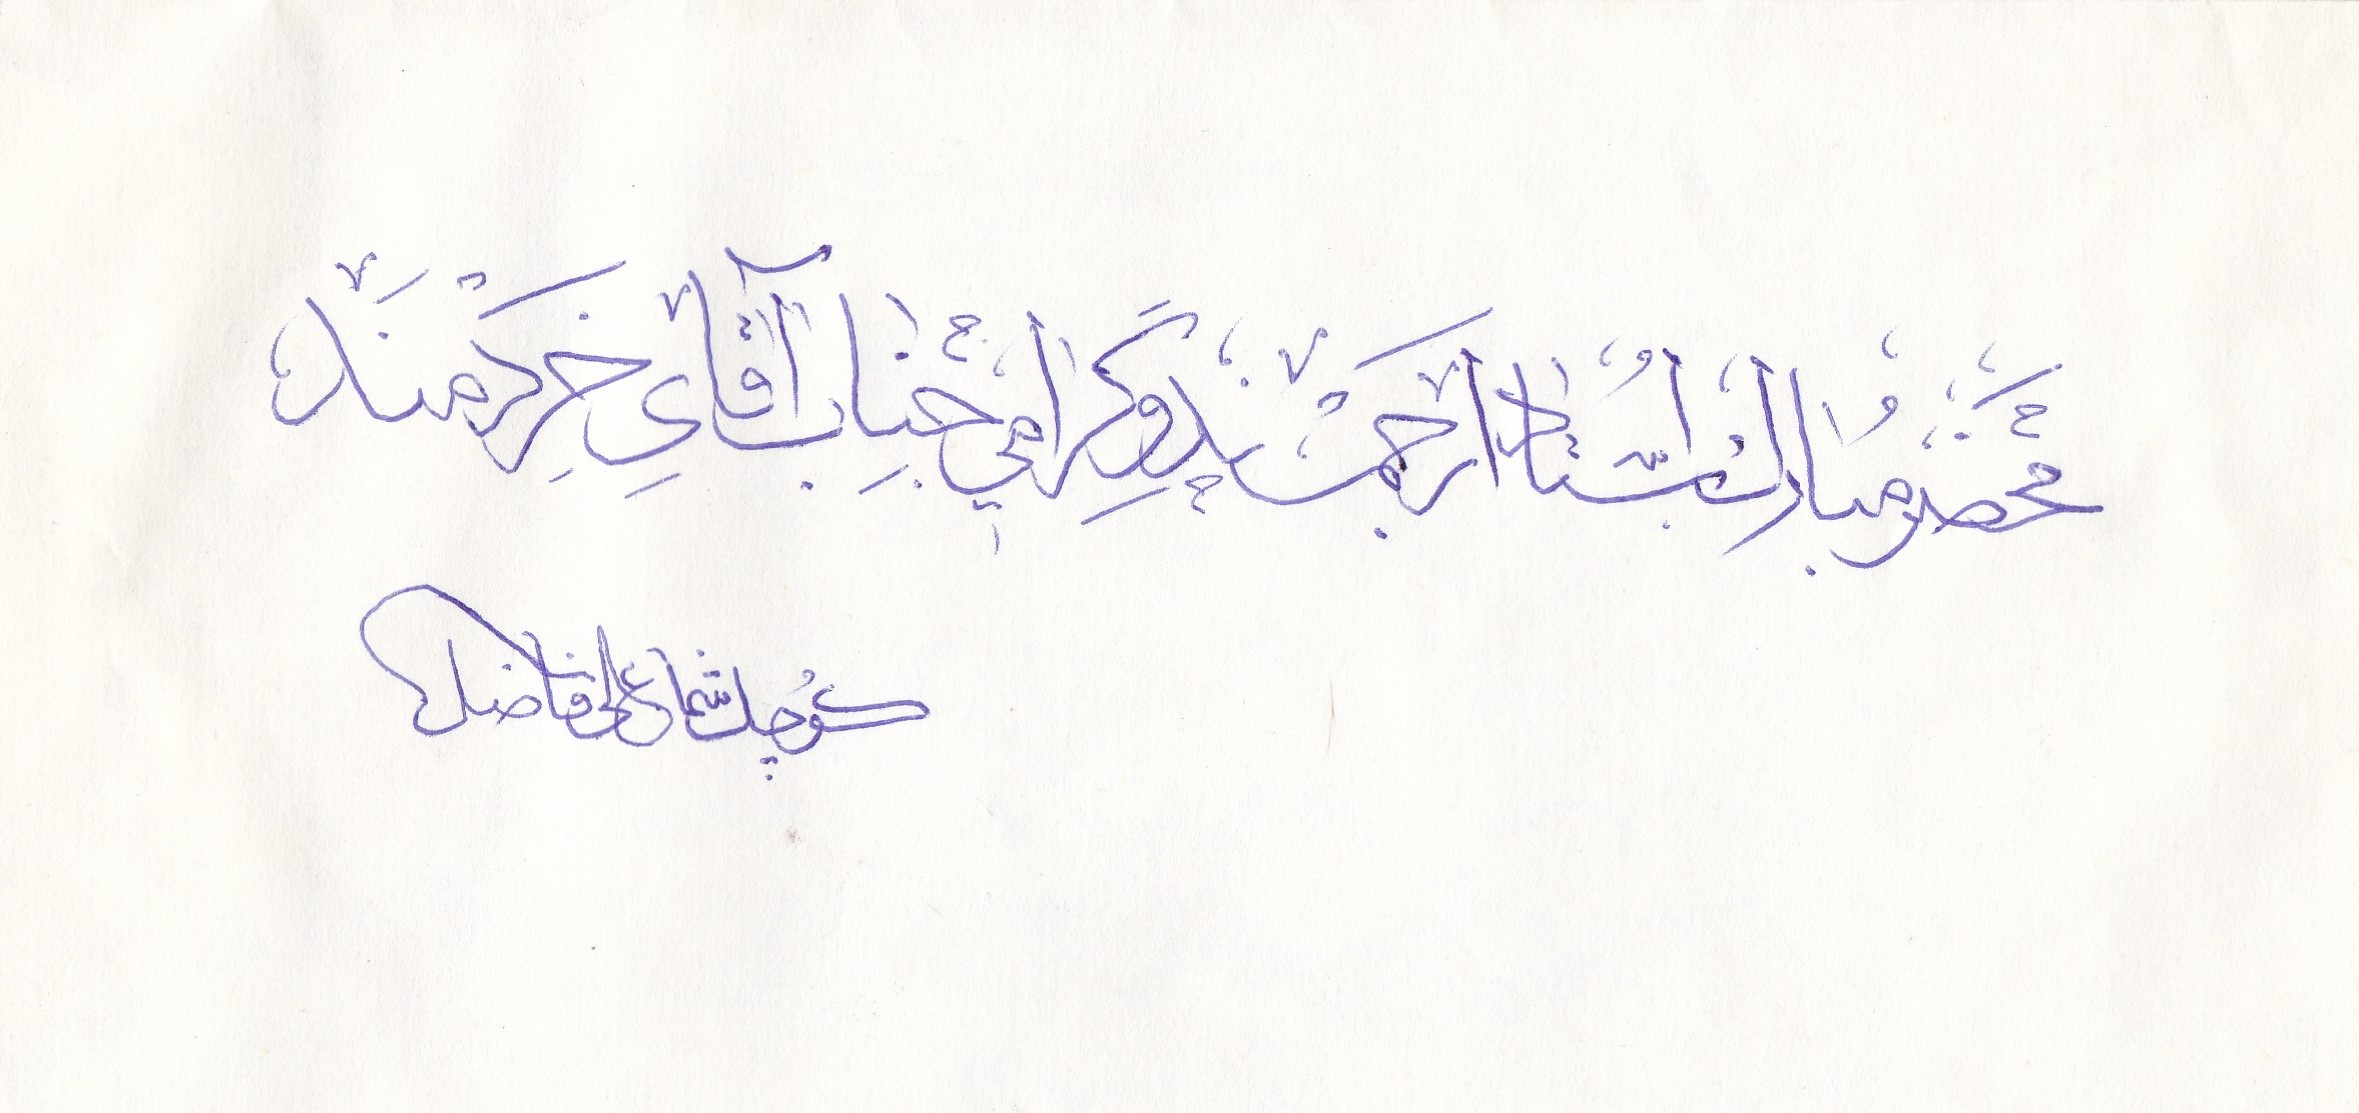 محضر مبارک استاد ارجمند و گرامی جناب آقای خردمند
کوچک شما علی فاضل